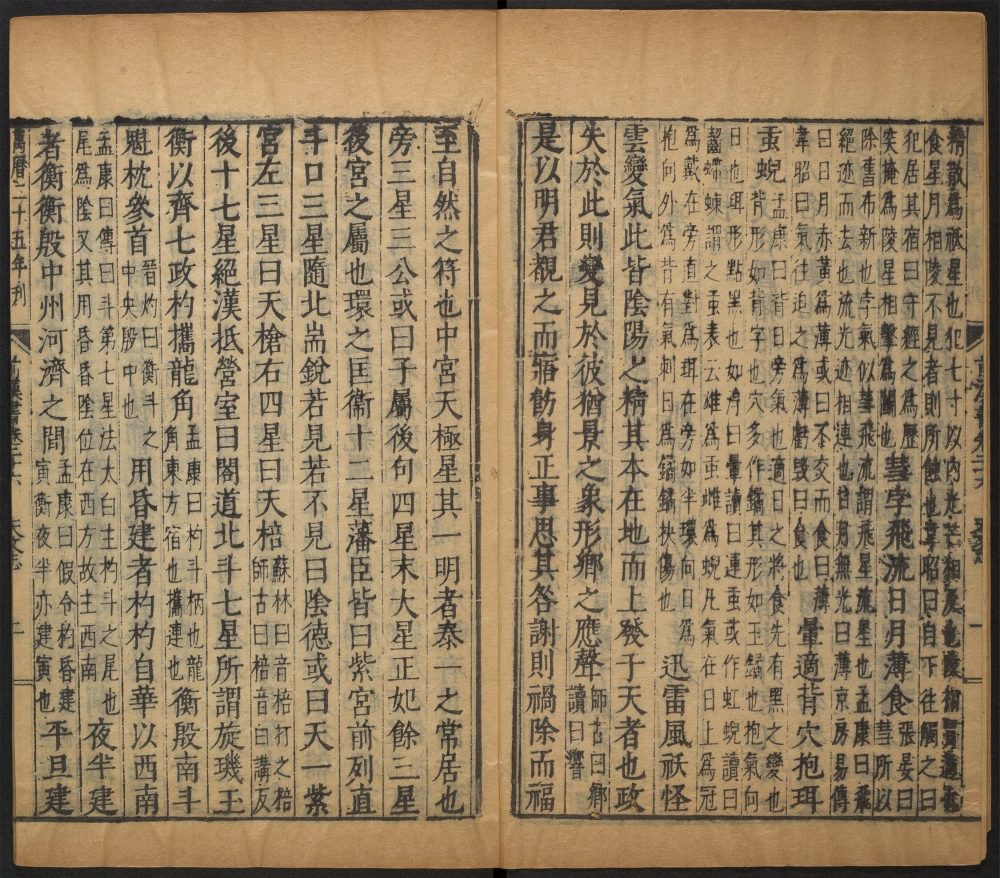 精散為祇星也犯七寸以內光芒相及也陵相冐過也
食星月相陵不見者則所蝕也韋昭曰自下往觸之曰
犯居其宿曰守經之為歷
突掩為陵星相擊為鬬也
彗孛飛流日月薄食
張晏曰
彗所以
除舊布新也孛氣似彗飛流謂飛星流星也孟康曰飛
絕迹而去也流光迹相連也日月無光曰薄京房易傳
曰日月赤黃為薄或曰不交而食曰薄
韋昭曰氣往迫之為薄虧毀曰食也
暈適背穴抱珥
䖝蜺
孟康曰背日旁氣也適日之將食先有黑之變也
背形如背字也穴多作鐍其形如玉鐍也抱氣向
日也珥形點黑也如淳曰暈讀曰運䖝或作虹蜺讀曰
齧螮蝀謂之䖝表云雄為䖝雌為蜺凡氣在日上為冠
為戴在旁直對為珥在旁如半環向日為
抱向外為背有氣刺日為鐍鐍抉傷也
迅雷風祅怪
雲變氣此皆陰陽之精其本在地而上發于天者也政
失於此則變見於彼猶景之象形鄉之應聲
師古曰鄉
讀曰響
是以明君覩之而寤飭身正事思其咎謝則禍除而福
至自然之符也中宮天極星其一明者泰一之常居也
旁三星三公或曰子屬後句四星末大星正妃餘三星
後宮之屬也環之匡衞十二星藩臣皆曰紫宮前列直
斗口三星隨北耑銳若見若不見曰陰德或曰天一紫
宮左三星曰天槍右四星曰天棓
蘇林曰音棓打之棓
師古曰棓音曰講反
後十七星絕漢抵營室曰閣道北斗七星所謂旋璣玉
衡以齊七政杓攜龍角
孟康曰杓斗柄也龍
角東方宿也攜連也
衡殷南斗
魁枕參首
晉灼曰衡斗之
中央殷中也
用昏建者杓杓自華以西南
孟康曰傳曰斗第七星法太白主杓斗之尾也
尾為陰又其用昏昏陰位在西方故主西南
夜半建
者衡衡殷中州河濟之間
孟康曰假令杓昏建
寅衡夜半亦建寅也
平旦建
萬曆二十五年刊
前漢書卷二十六
天文志
二